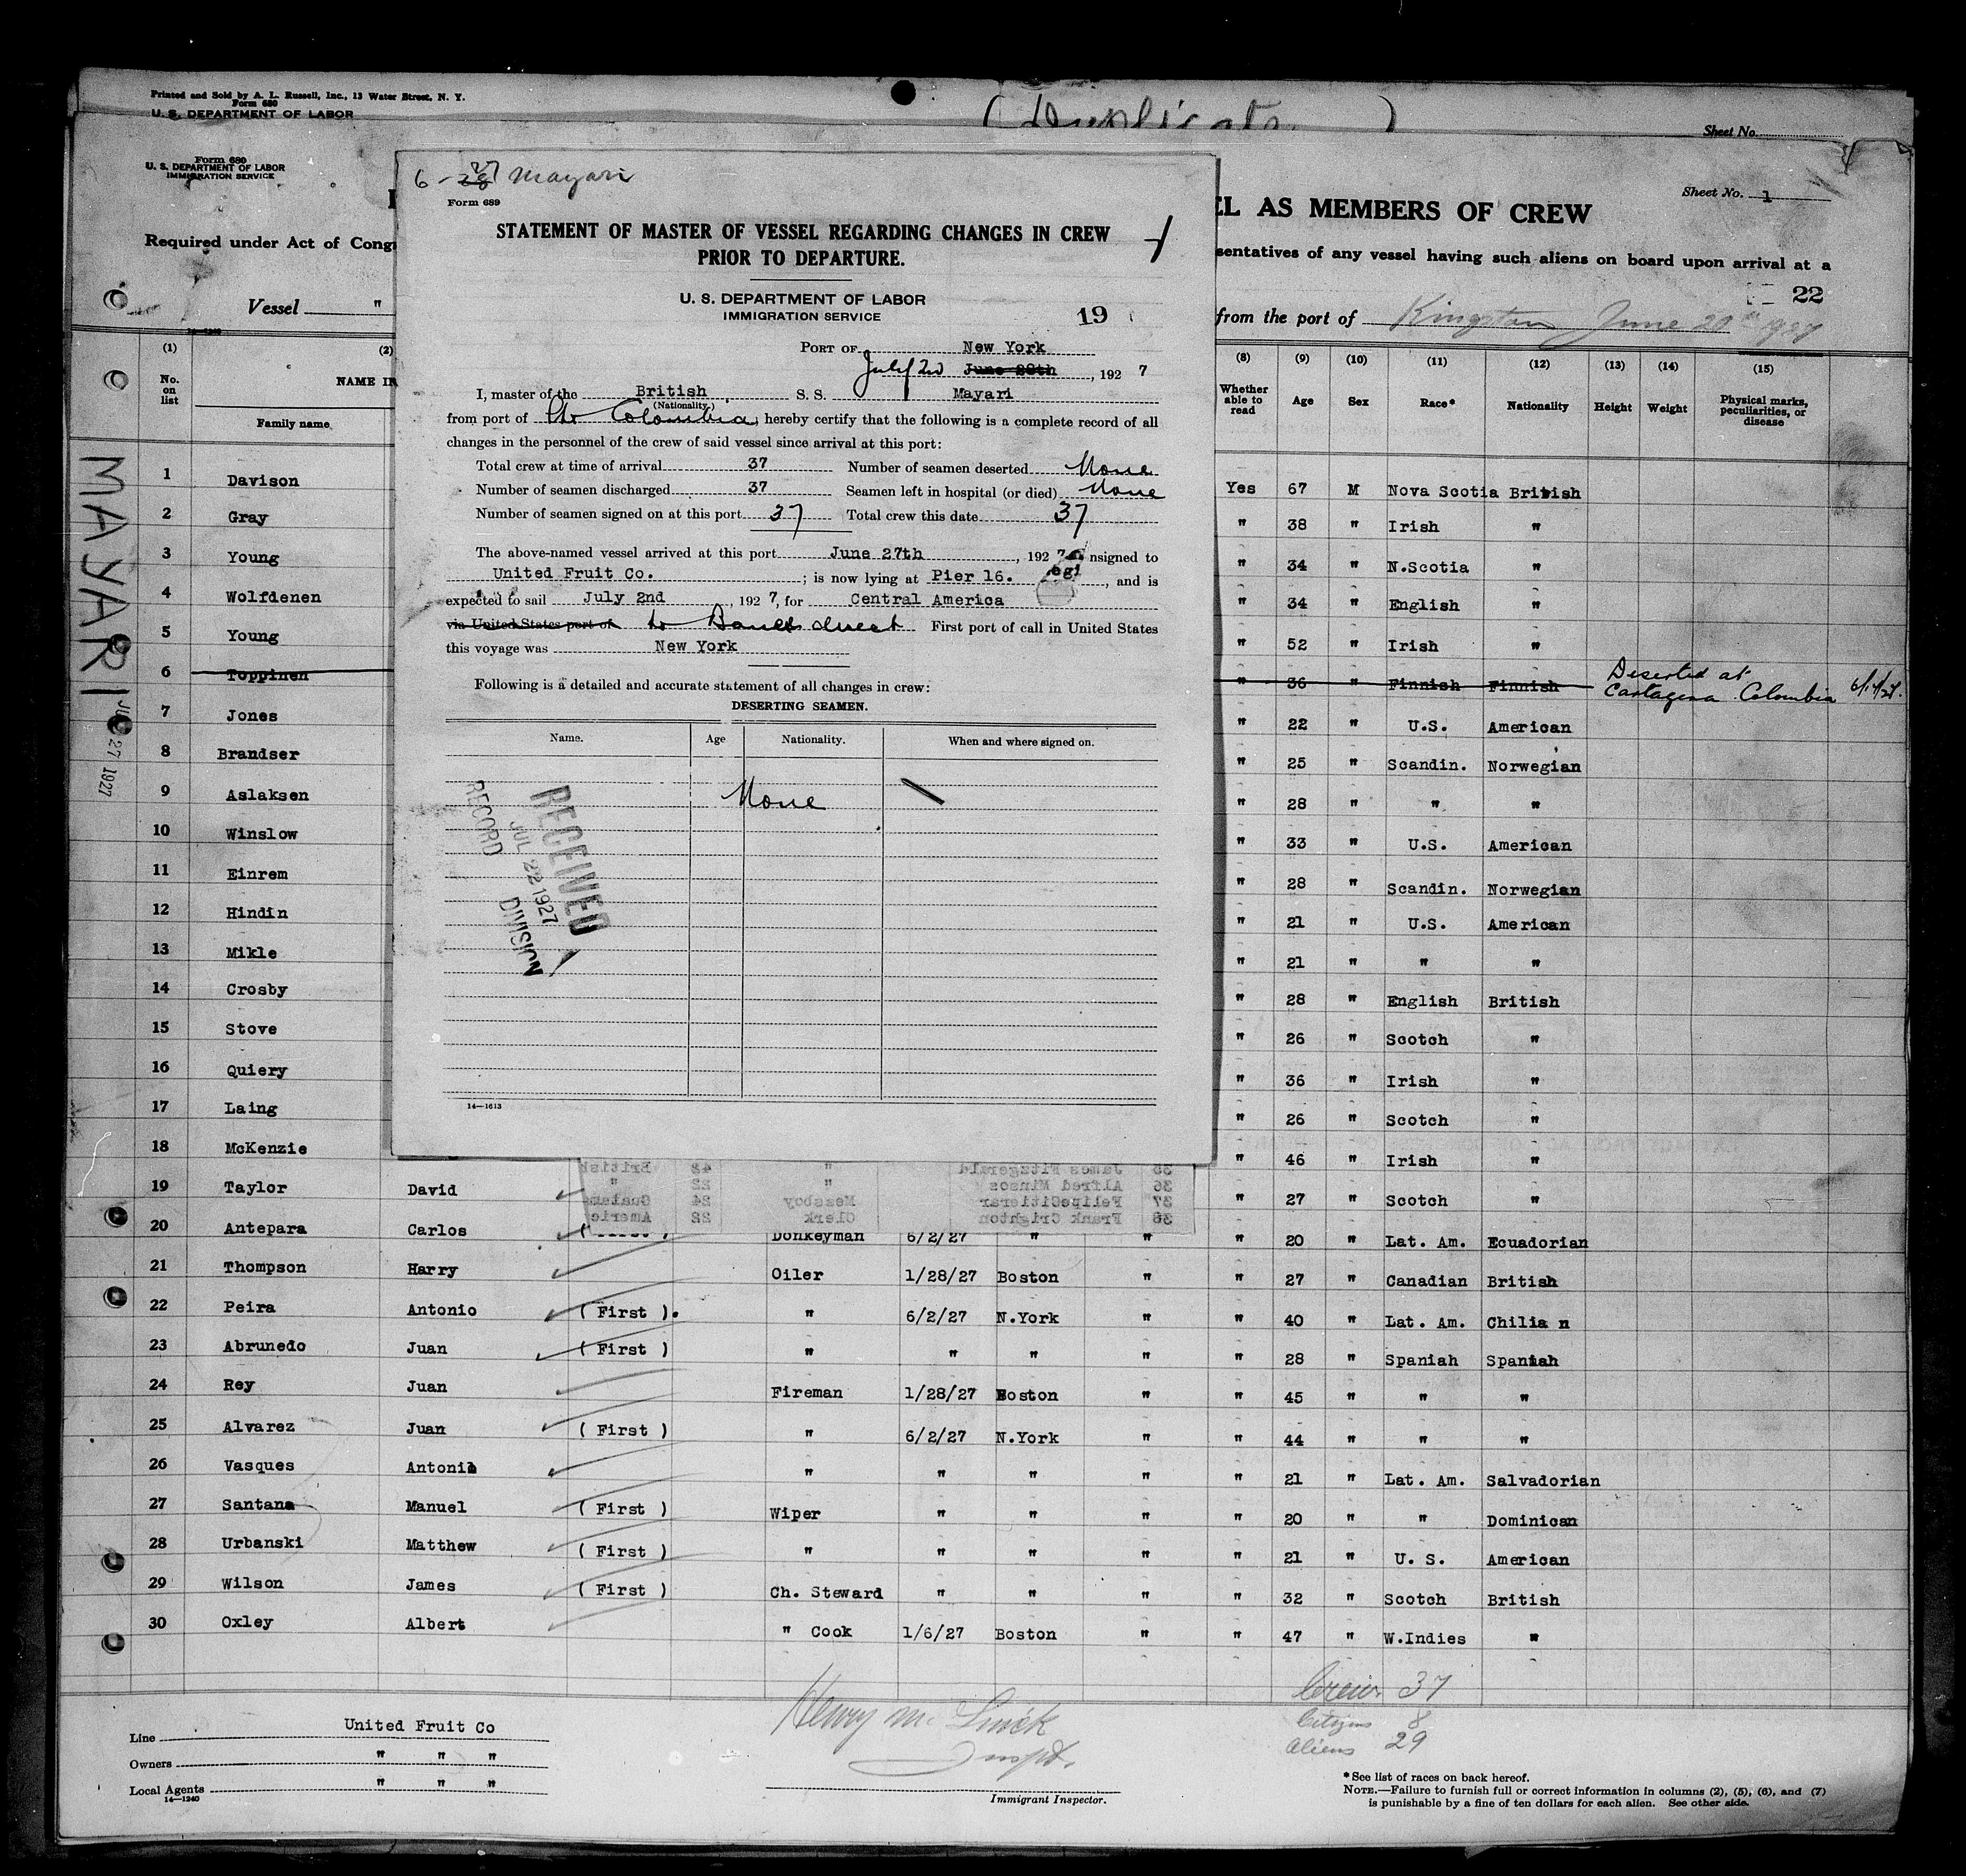 Printed and Sold by A. L. Russell, Inc., 13 Water Street, N. Y.
Form 680
U. S. DEPARTMENT OF LABOR
(Duplicate )
Sheet No.
Form 680
U. S. DEPARTMENT OF LABOR
IMMIGRATION SERVICE
Sheet No. 1
EL AS MEMBERS OF CREW
Required under Act of Cong
sentatives of any vessel having such aliens on board upon arrival at a
22
Vessel "
from the port of Kingston June 20th 1927
6-28 27 Mayari
Form 689
STATEMENT OF MASTER OF VESSEL REGARDING CHANGES IN CREW
PRIOR TO DEPARTURE.
U. S. DEPARTMENT OF LABOR
IMMIGRATION SERVICE
19
PORT OF New York
July 2nd June 28th, 1927
I, master of the British S. S. Mayari
(Nationality)
from port of Colombia, hereby certify that the following is a complete record of all
changes in the personnel of the crew of said vessel since arrival at this port:
Total crew at time of arrival 37 Number of seamen deserted None
Number of seamen discharged 37 Seamen left in hospital (or died) None
Number of seamen signed on at this port 37 Total crew this date 37
The above-named vessel arrived at this port June 27th, 1927 nsigned to
United Fruit Co.; is now lying at Pier 16. , and is
expected to sail July 2nd, 1927, for Central America
via United States port of to direct First port of call in United States
this voyage was New York
Following is a detailed and accurate statement of all changes in crew:
DESERTING SEAMEN.
Name. Age Nationality. When and where signed on.
None
RECEIVED
JUL 22 1927
RECORD DIVISION
14—1613
MAYARI
27 1927
(1) (2) (8) (9) (10) (11) (12) (13) (14) (15)
No. on list NAME IN Whether able to read Age Sex Race* Nationality Height Weight Physical marks, peculiarities, or disease
Family name
1 Davison Yes 67 M Nova Scotia British
2 Gray " 38 " Irish "
3 Young " 34 " N.Scotia "
4 Wolfdenen " 34 " English "
5 Young " 52 " Irish "
6 Toppinen " 36 " Finnish Finnish Deserted at Cartagena Colombia
7 Jones " 22 " U.S. American
8 Brandser " 25 " Scandin. Norwegian
9 Aslaksen " 28 " " "
10 Winslow " 33 " U.S. American
11 Einrem " 28 " Scandin. Norwegian
12 Hindin " 21 " U.S. American
13 Mikle " 21 " " "
14 Crosby " 28 " English British
15 Stove " 26 " Scotch "
16 Quiery " 36 " Irish "
17 Laing " 26 " Scotch "
18 McKenzie " 46 " Irish "
35 James Fitzgerald " 48 British
36 Alfred Minsos " 22 "
37 Felipe Messboy 24
38 Frank Crighton Clerk 22 Americ
19 Taylor David " 27 " Scotch "
20 Antepara Carlos Donkeyman 6/2/27 " " " 20 " Lat. Am. Ecuadorian
21 Thompson Harry Oiler 1/28/27 Boston " " 27 " Canadian British
22 Peira Antonio ( First ). " 6/2/27 N.York " " 40 " Lat. Am. Chilia n
23 Abrunedo Juan ( First ) " " " " " 28 " Spanish Spanish
24 Rey Juan Fireman 1/28/27 Boston " " 45 " " "
25 Alvarez Juan ( First ) " 6/2/27 N.York " " 44 " " "
26 Vasques Antonio " " " " " 21 " Lat. Am. Salvadorian
27 Santana Manuel ( First ) Wiper " " " " 20 " " Dominican
28 Urbanski Matthew ( First ) " " " " " 21 " U. S. American
29 Wilson James ( First ) Ch. Steward " " " " 32 " Scotch British
30 Oxley Albert " Cook 1/6/27 Boston " " 47 " W.Indies "
Crew 37
Citizens 8
Aliens 29
Line United Fruit Co
Owners " " "
Local Agents " " "
14—1240
Henry M.
Inspt.
Immigrant Inspector.
*See list of races on back hereof.
NOTE.—Failure to furnish full or correct information in columns (2), (5), (6), and (7)
is punishable by a fine of ten dollars for each alien. See other side.